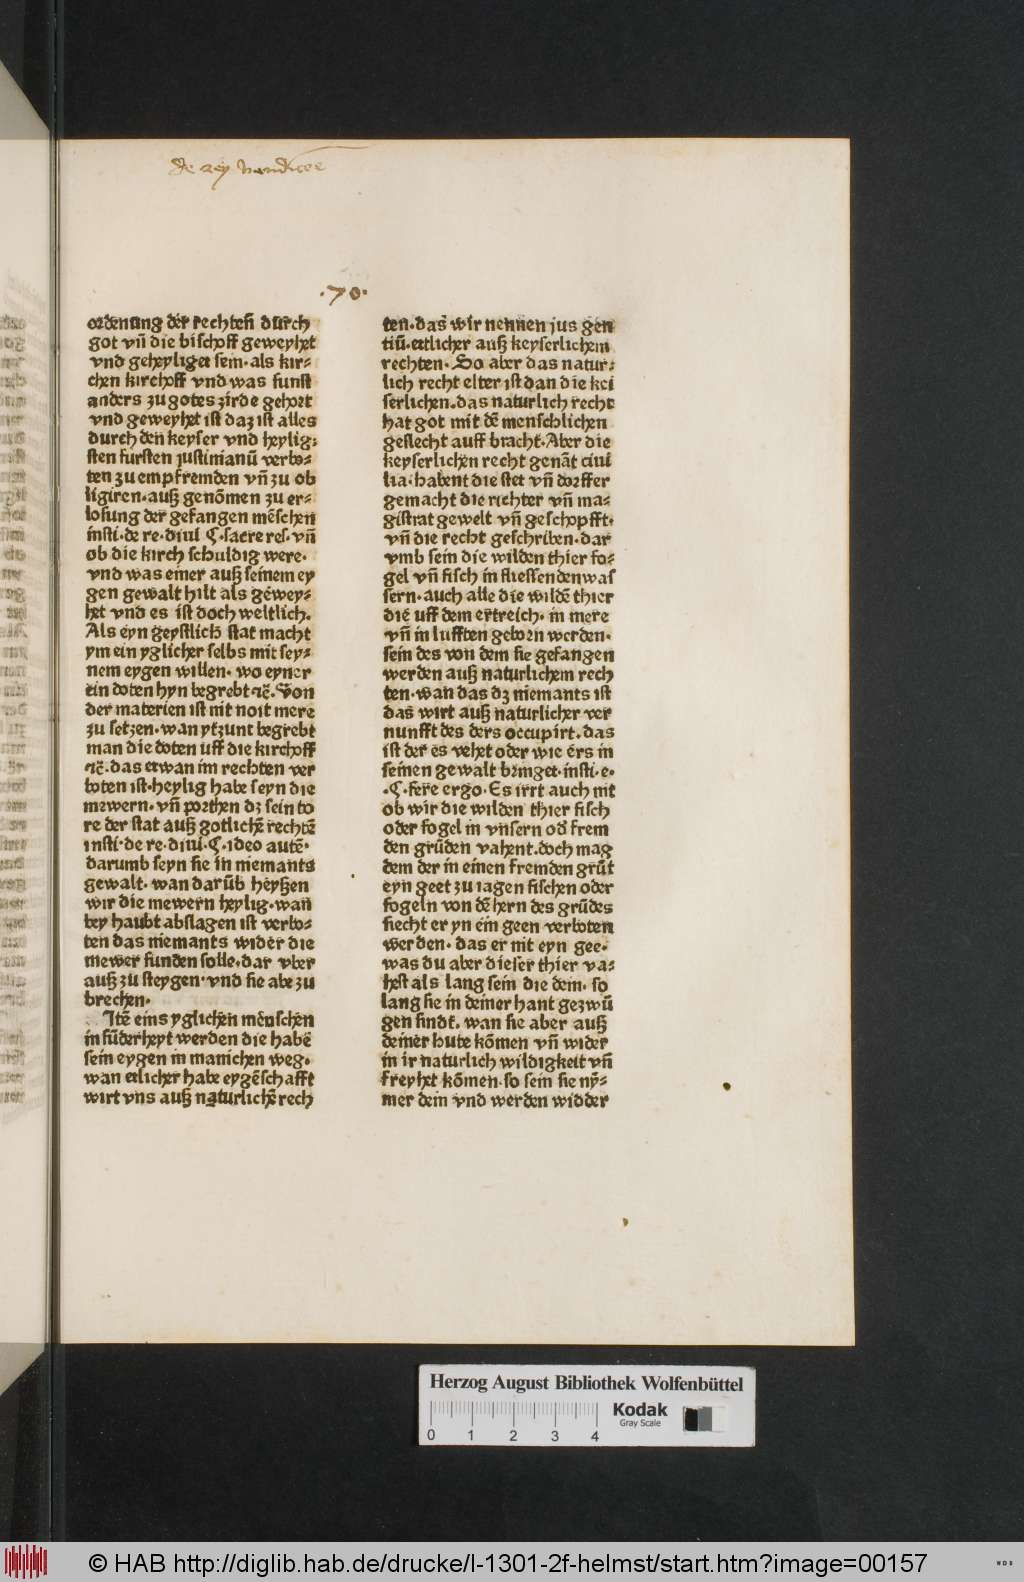 de rey vendicõe
.70.
ordenung der rechten̄ durch
got vn̄ die bischoff geweyhet
vnd geheyliget sein·als kir⸗
chen kirchoff vnd was sunst
anders zu gotes zirde gehort
vnd geweyhet ist daz ist alles
durch den keyser vnd heylig⸗
sten fursten justinianū verbo⸗
ten zu empfremden vn̄ zu ob
ligiren·auß genōmen zu er⸗
losung der gefangen mēschen
insti·de re·diui ¶·sacre res·vn̄
ob die kirch schuldig were·
vnd was einer auß seinem ey
gen gewalt hilt als gewey⸗
het vnd es ist doch weltlich.
Als eyn geystlich stat macht
ym ein yglicher selbs mit sey⸗
nem eygen willen· wo eyner
ein doten hyn begrebt ⁊c̄·Von
der materien ist nit noit mere
zu setzen·wan ytzunt begrebt
man die doten uff die kirchoff
⁊c̄·das etwan im rechten ver
boten ist·heylig habe seyn die
mewern·vn̄ porthen dz sein to
re der stat auß gotlichē rechtē
insti·de re·diui·¶·ideo autē·
darumb seyn sie in niemants
gewalt·wan darūb heyßen
wir die mewern heylig·wan̄
bey haubt abslagen ist verbo⸗
ten das niemants wider die
mewer sunden solle·dar vber
auß zu steygen·vnd sie abe zu
brechen·
Itē eins yglichen menschen
in sūderheyt werden die habē
sein eygen in manichen weg·
wan etlicher habe eygēschafft
wirt vns auß naturlichē rech
ten·das wir nennen jus gen
tiū·etlicher auß keyserlichem
rechten·So aber das natur⸗
lich recht elter ist dan die kei
serlichen·das naturlich recht
hat got mit dē menschlichen
geslecht auff bracht·Aber die
keyserlichen recht genāt ciui
lia·habent die stet vn̄ dorffer
gemacht die richter vn̄ ma⸗
gistrat gewelt vn̄ geschopfft·
vn̄ die recht geschriben·dar
vmb sein die wilden thier fo⸗
gel vn̄ fisch in fliessenden was
sern·auch alle die wildē thier
die uff dem ertreich·in mere
vn̄ in lufften geborn werden·
sein des von dem sie gefangen
werden auß naturlichem rech
ten·wan das dz niemants ist
das wirt auß naturlicher ver
nunfft des ders occupirt·das
ist der es vehet oder wie ers in
seinen gewalt bringet·insti·e·
·¶·fere ergo·Es irrt auch nit
ob wir die wilden thier fisch
oder fogel in vnsern od̄ frem
den grūden vahent·doch mag
dem der in einen fremden grūt
eyn geet zu iagen fischen oder
fogeln von dē hern des grūdes
siecht er yn ein geen verboten
werden·das er nit eyn gee·
was du aber dieser thier va⸗
hest als lang sein die dein·so
lang sie in deiner hant gezwū
gen sindt·wan sie aber auß
deiner hute kōmen vn̄ wider
in ir naturlich wildigkeit vn̄
freyhet kōmen·so sein sie nȳ⸗
mer dein vnd werden widder
Herzog August Bibliothek Wolfenbüttel
Kodak
Gray Scale
0 1 2 3 4
© HAB http://diglib.hab.de/drucke/l-1301-2f-helmst/start.htm?image=00157
WDB